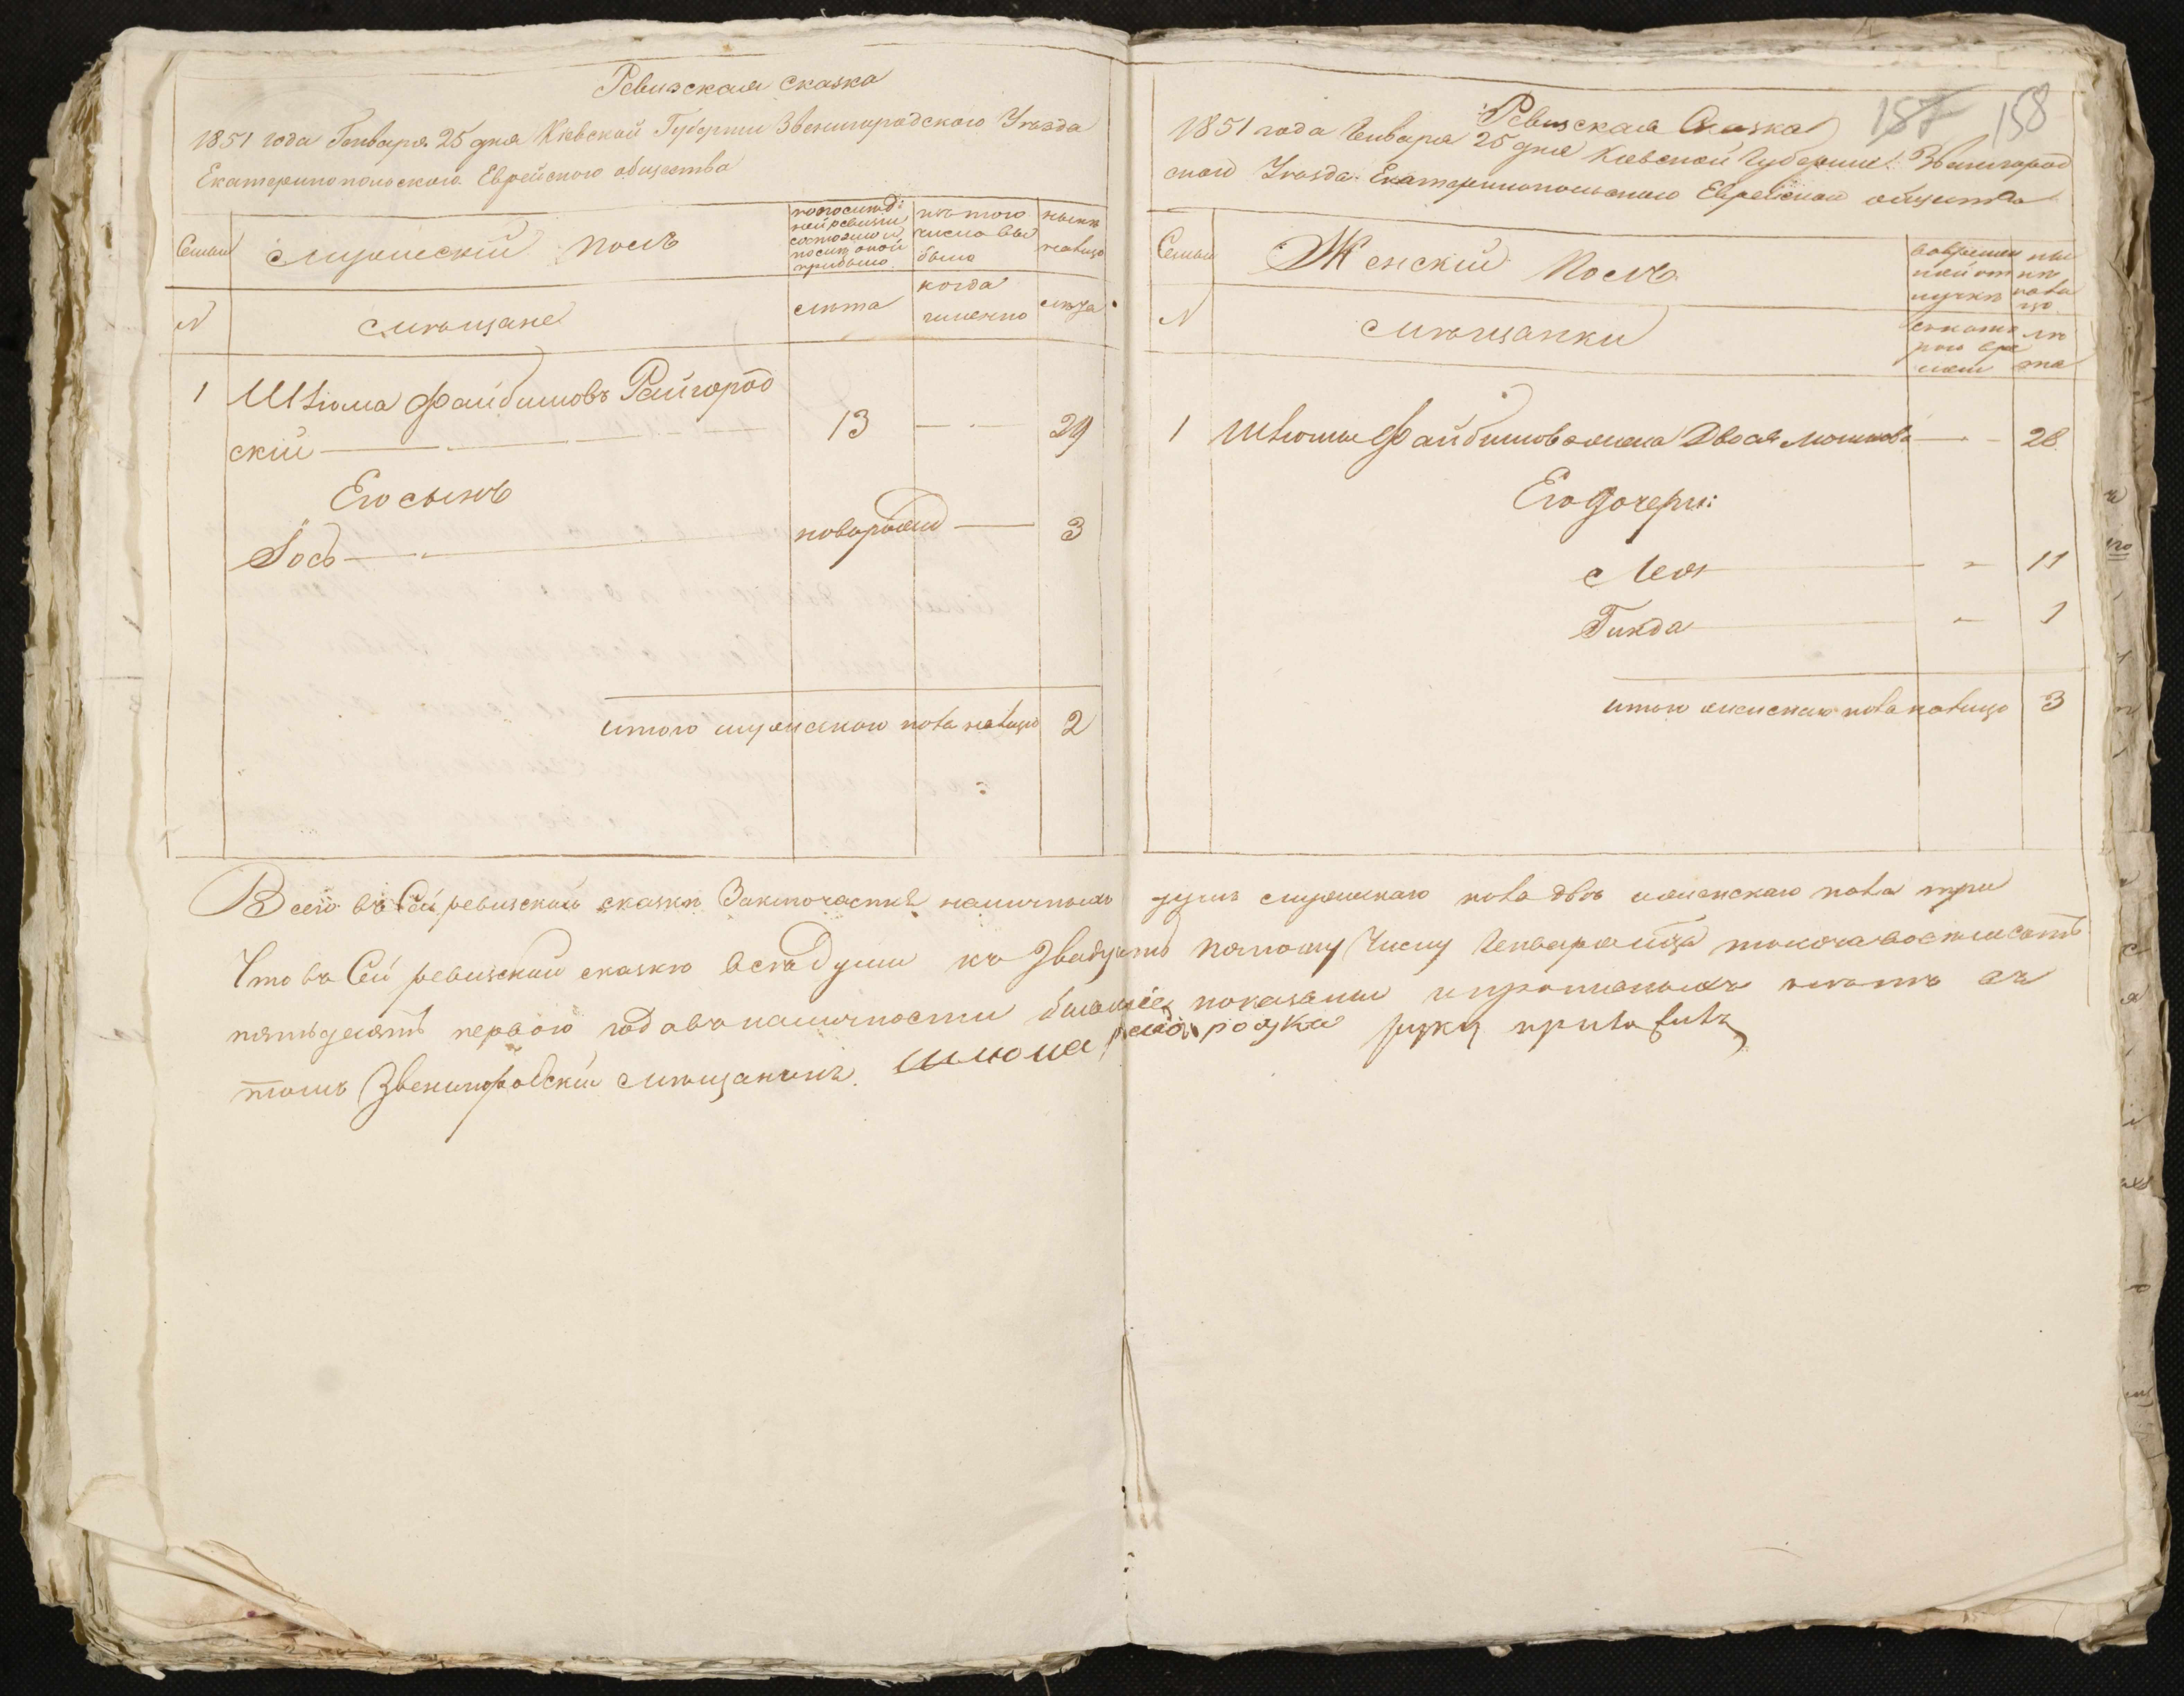 Ревизская сказка
1851 года Генваря 25 дня Кіевской Губерніи Звенигородскаго Уѣзда
Екатеринопольскаго Еврейского общества
Семьи
Мужескій полъ
по послѣд:
ней ревизіи
состояло и
послѣ оной
прибыло
изъ того
числа вы
было
нынѣ
на лицо
№
Мѣщане
лѣта
когда
именно
лѣта
1 Шлiома Файбишовъ Райгород
скій 13 29
Его сынъ
Іось новорожден 3
итого мужескаго пола налицо 2
157 158
Ревизская Сказка
1851 года Генваря 25 дня Кіевской Губерніи Звенигород
скаго Уѣзда Екатеринопольскаго Еврейскаго общества
Семьи
Женскій Полъ
во времен
ной от
лучкѣ
ны
нѣ
на ли
цо
№
Мѣщанки
съ кото
раго вре
мени
лѣ
та
1 Шліомы Файбишова жена Двося Мошкова 28
Его дочери:
Лея 11
Гинда 1
итого женскаго пола налицо 3
Всего въ Сей ревизской сказкѣ Заключается наличныхъ душъ мужескаго пола двѣ и женскаго пола три
Что въ Сей ревизской сказкѣ всѣ души къ двадцать пятому Числу Генваря мца тысяча восемьсотъ
пятьдесятъ первого года въ наличности бывшіе показаны и прописныхъ нѣтъ въ
томъ Звенигородскій мѣщанинъ Шлюма руку приложилъ